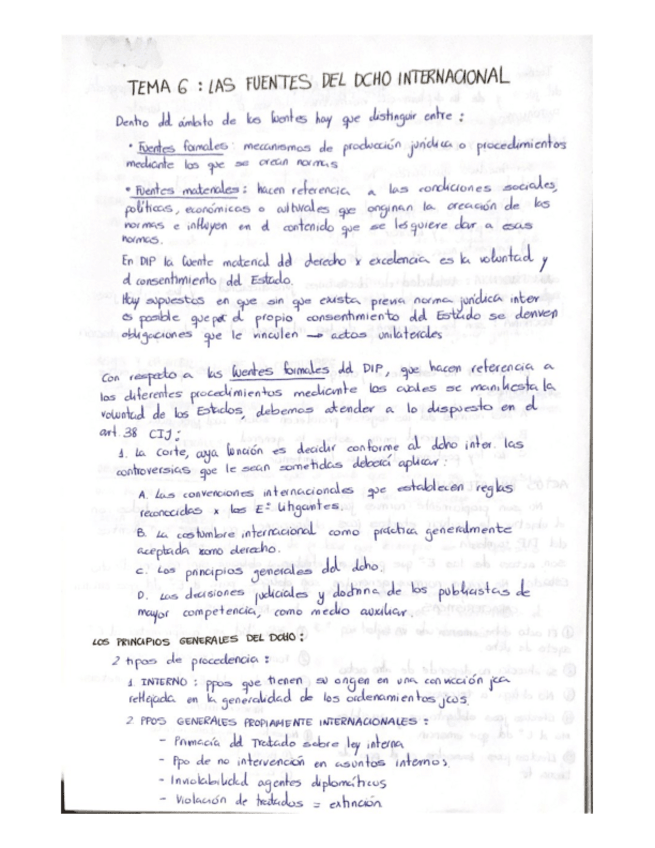 TEMA 6 : LAS FUENTES DEL DCHO INTERNACIONAL
Dentro del ámbito de las fuentes hay que distinguir entre :
• Fuentes formales : mecanismos de producción jurídica o procedimientos
mediante los que se crean normas
• Fuentes materiales : hacen referencia a las condiciones sociales,
políticas, económicas o culturales que originan la creación de las
normas e influyen en el contenido que se les quiere dar a esas
normas.
En DIP la fuente material del derecho x excelencia es la voluntad y
el consentimiento del Estado.
Hay supuestos en que sin que exista previa norma jurídica inter
es posible que por el propio consentimiento del Estado se deriven
obligaciones que le vinculen → actos unilaterales
Con respecto a las fuentes formales del DIP, que hacen referencia a
los diferentes procedimientos mediante los cuales se manifiesta la
voluntad de los Estados, debemos atender a lo dispuesto en el
art. 38 CIJ :
1. La corte, cuya función es decidir conforme al dcho inter. las
controversias que le sean sometidas deberá aplicar :
A. Las convenciones internacionales que establecen reglas
reconocidas x los Eº litigantes.
B. La costumbre internacional como práctica generalmente
aceptada como derecho.
C. Los principios generales del dcho.
D. Las decisiones judiciales y doctrina de los publicistas de
mayor competencia, como medio auxiliar.
LOS PRINCIPIOS GENERALES DEL DCHO :
2 tipos de procedencia :
1. INTERNO : ppos que tienen su origen en una convicción jca
reflejada en la generalidad de los ordenamientos jcos.
2 PPOS GENERALES PROPIAMENTE INTERNACIONALES :
- Primacía del Tratado sobre ley interna
- Ppo de no intervención en asuntos internos.
- Inviolabilidad agentes diplomáticos
- Violación de tratados = extinción